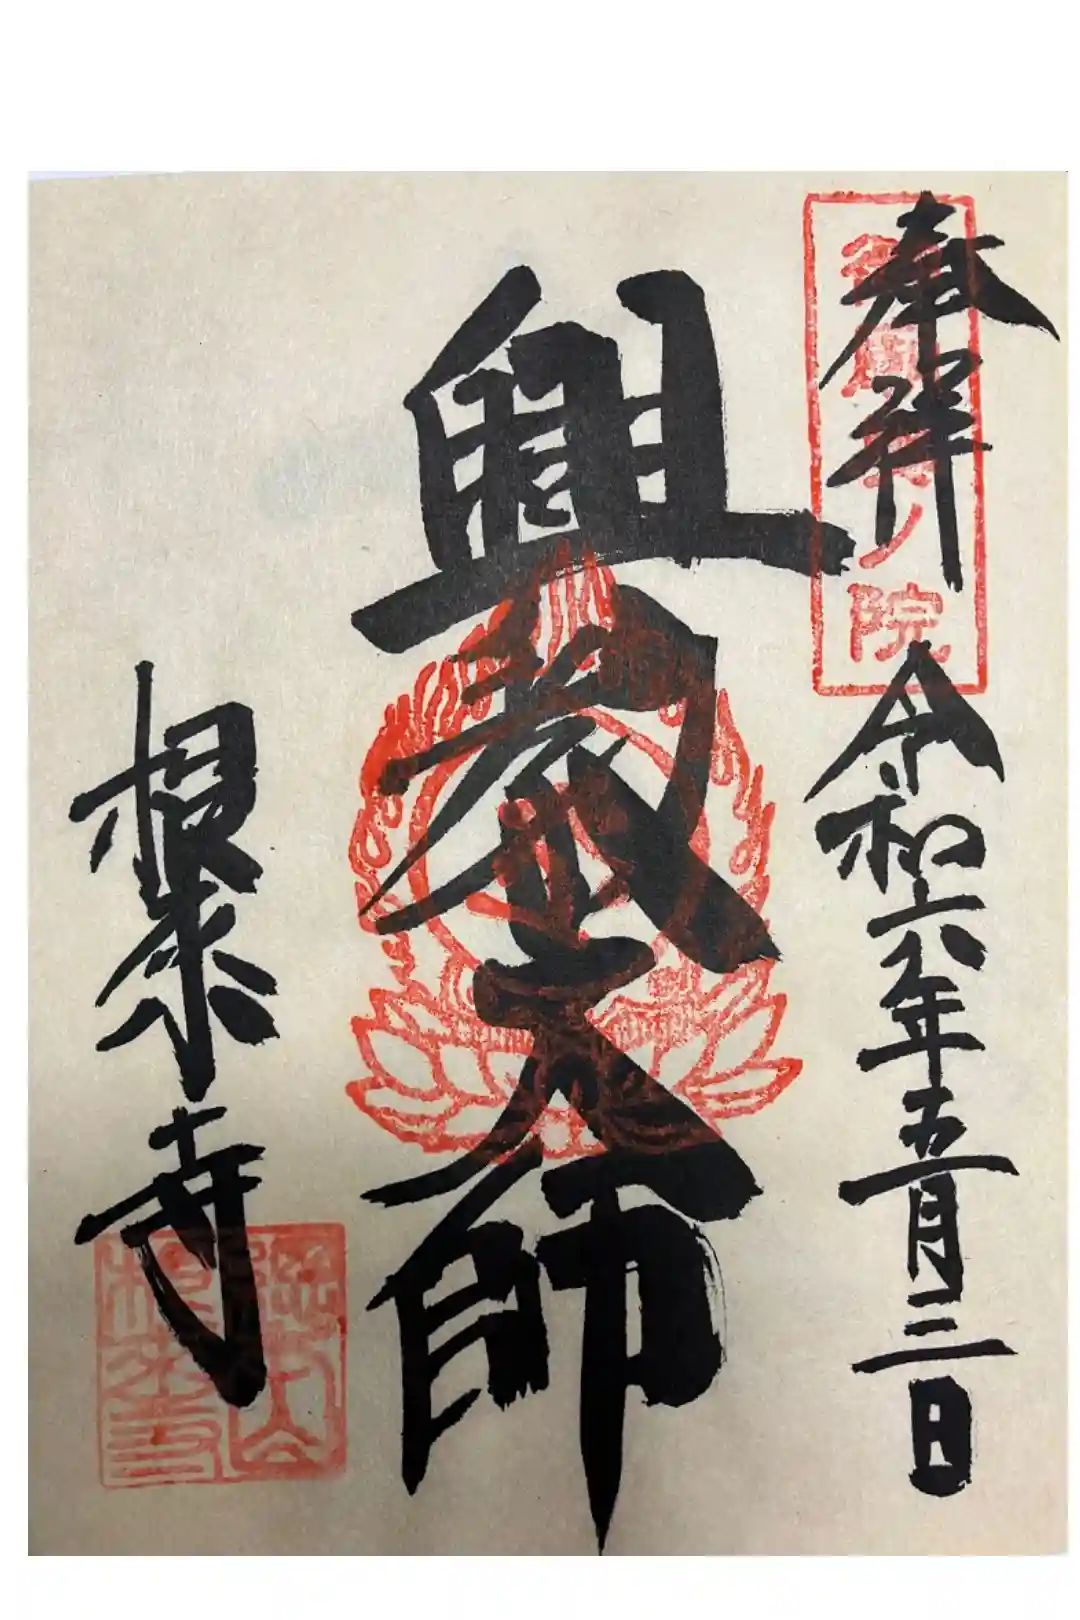 奉拝
令和六年五月三日
興教大師
根来寺
ノ院
根来寺